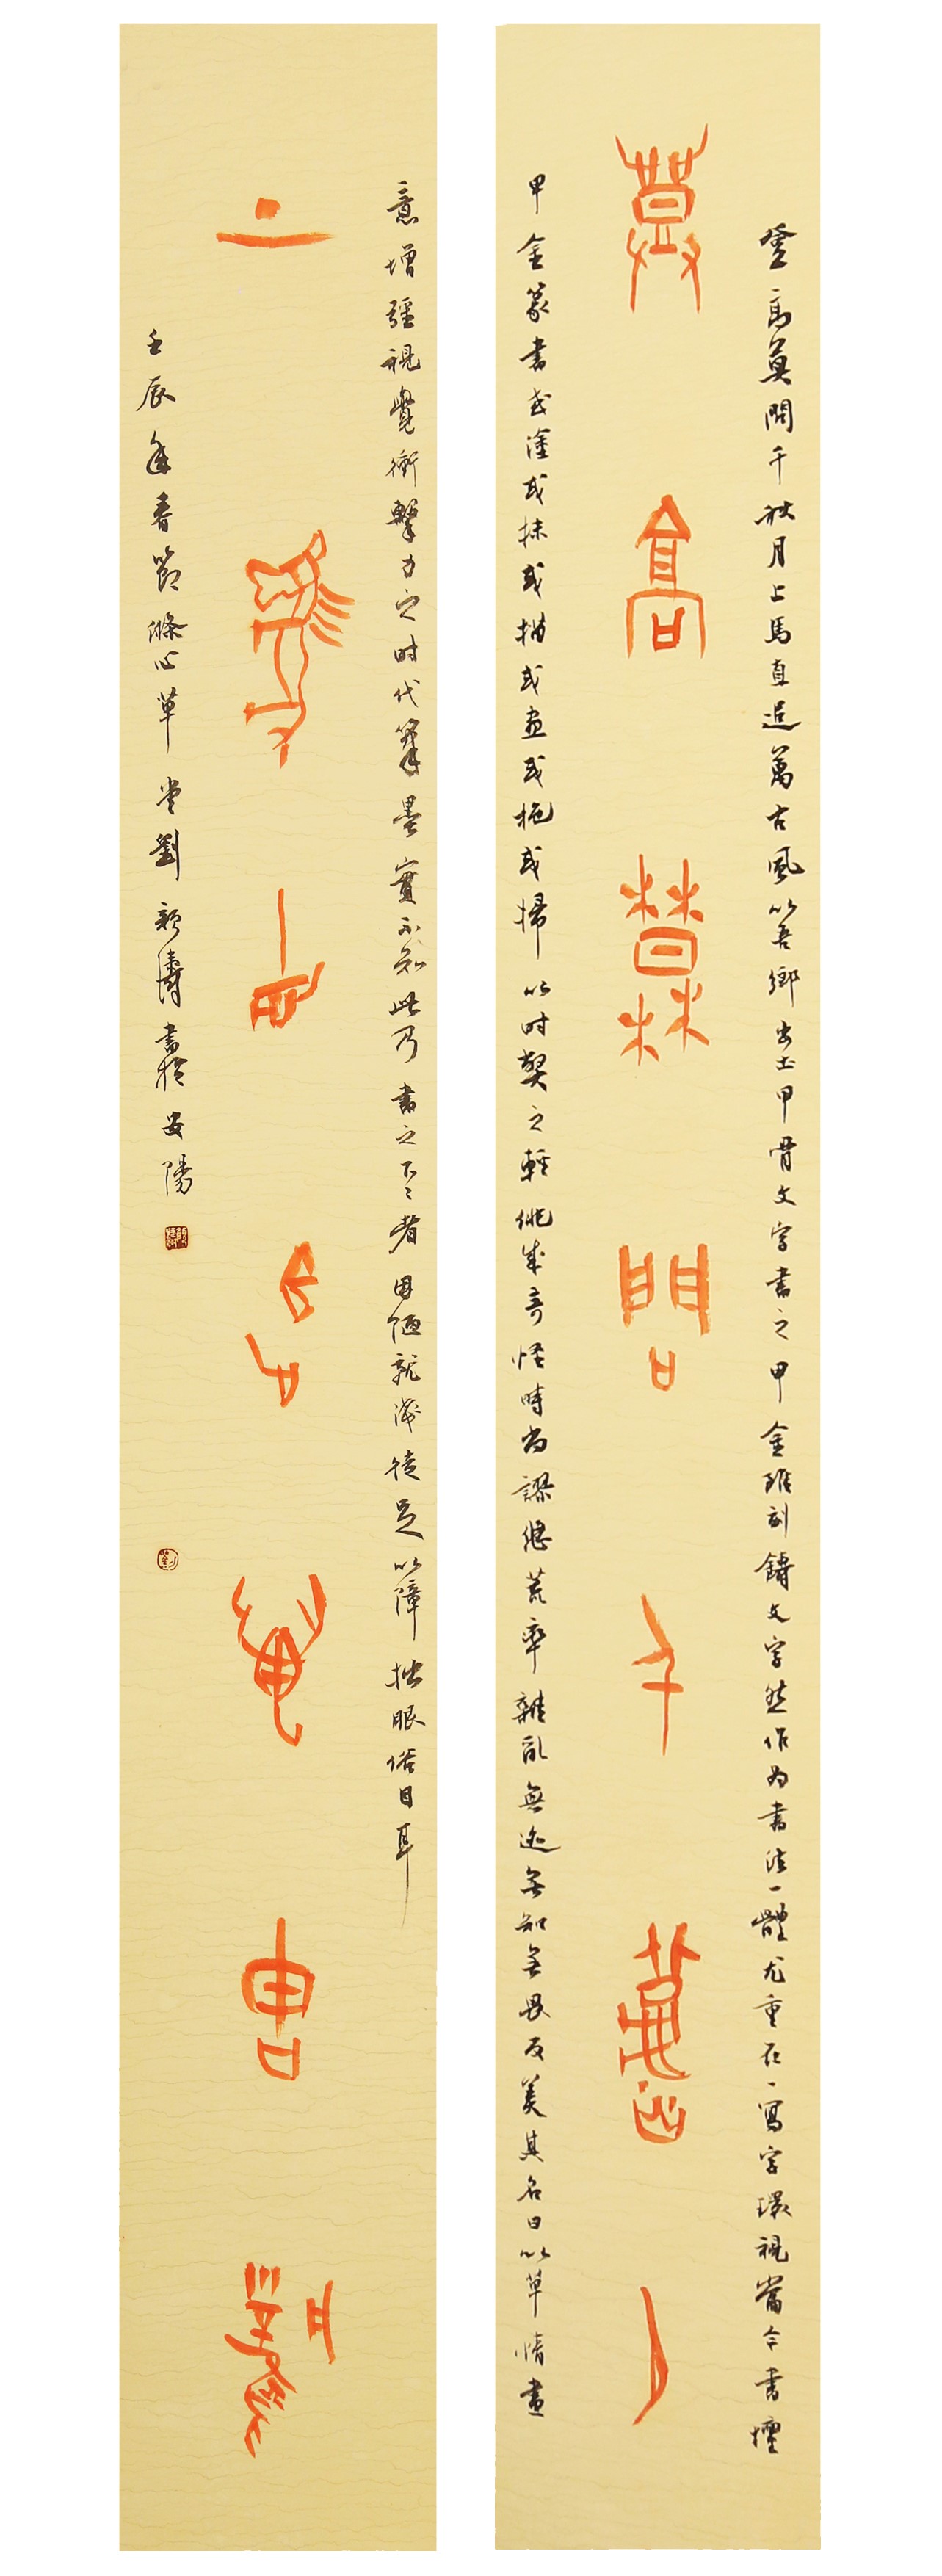 登高莫問千秋月上馬直追萬古風以吾鄉出土甲骨文字書之甲金雖刻鑄文字然作為書法一體尤重在一寫字環視當今書壇
登高莫問千秋月
甲金篆書或塗或抹或描或畫或拖或掃以时契之輕佻求奇怪時尚謬悠荒率雜亂無迹無知無畏反美其名曰以草情畫
意增强視覺衝擊力之时代筆墨實不知此乃書之下々者因陋就淺徒足以障拙眼俗目耳
上馬直追萬古風
壬辰年春節滌心草堂劉顏濤書於安陽
劉